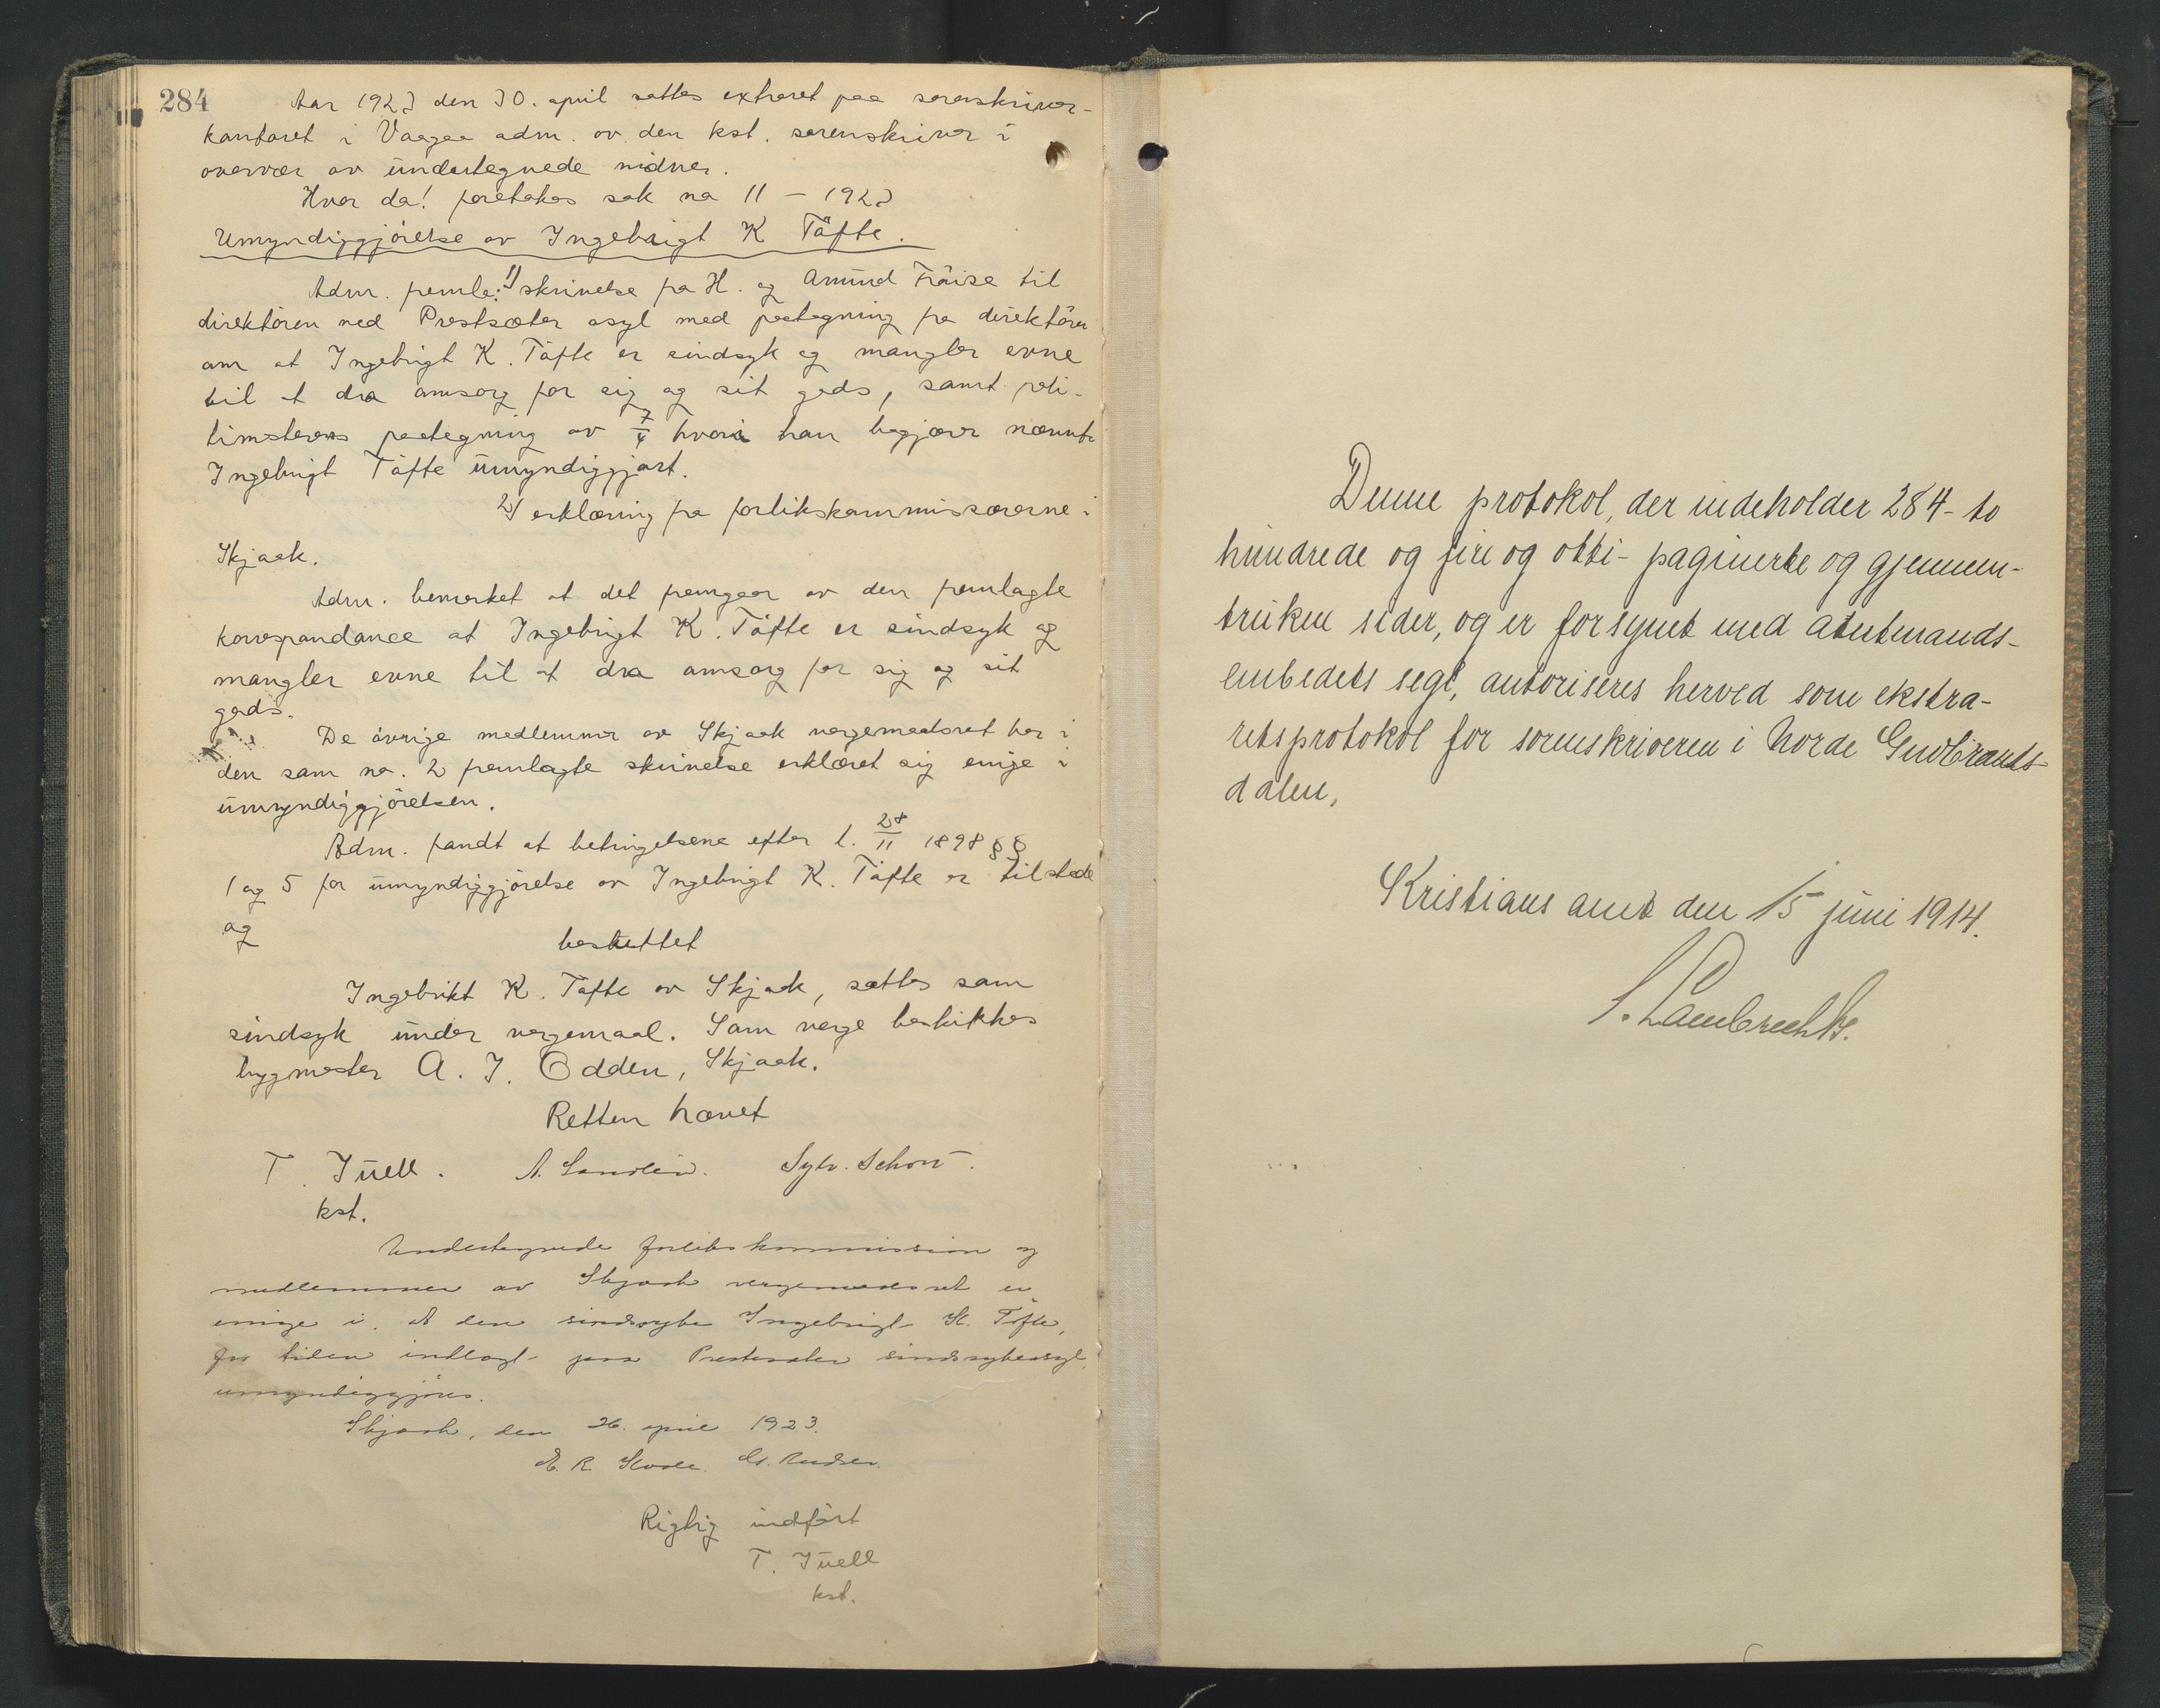 284
Aar 1923 den 30. april sattes extraret paa sorenskriver-
kontoret i Vaagaa adm. av den kst. sorenskriver i
overvær av undertegnede vidner.
Hvor da! foretokes sak no 11 – 1923
Umyndiggjörelse av Ingebrigt K Töfte.
Adm. fremla: 1) skrivelse fra H. og Amund til
direktören ved Prestsæter asyl med paategning fra direktören
om at Ingebrigt K. Töfte er sindsyk og mangler evne
til at dra omsorg for sig og sit gods, samt poli-
timesterens paategning av 7/4 hvori han begjærer nævnte
Ingebrigt Töfte umyndiggjort.
2) erklæring fra forlikskommissærerne i
Skjaak.
Adm. bemerket at det fremgaar av den fremlagte
korrespondance at Ingebrigt K. Töfte er sindsyk og
mangler evne til at dra omsorg for sig og sit
gods.
De övrige medlemmer av Skjaak vergemaalsret har i
den som no. 2 fremlagte skrivelse erklæret sig enige i
umyndiggjörelsen.
Adm. fandt at betingelsene efter l. 28/11 1898 §§
1 og 5 for umyndiggjörelse av Ingebrigt K. Töfte er tilstede
og
besluttet
Ingebrikt K. Töfte av Skjaak, sættes som
sindsyk under vergemaal. Som verge beskikkes
bygmester A. J. Odden, Skjaak.
Retten hævet
T. Juell. A. Sandlien. Sylv. Schou
kst.
Undertegnede forlikskommission og
medlemmer av Skjaak vergemaalsret er
enige i. At den sindssyke Ingebrigt K. Töfte,
for tiden indlagt paa Prestesæter sindssykeasyl,
umyndiggjöres.
Skjaak, den 26. april 1923.
Rigtig indfört
T. Juell
kst.
Denne protokol, der indeholder 284 - to
hundrede og fire og otti - paginerte og gjennem-
trukne sider, og er forsynet med amtmands-
embedets segl, autoriseres herved som ekstra-
retsprotokol for sorenskriveren i Nordre Gudbrands-
dalen,
Kristians amt den 15 juni 1914.
S. Lambrechts.